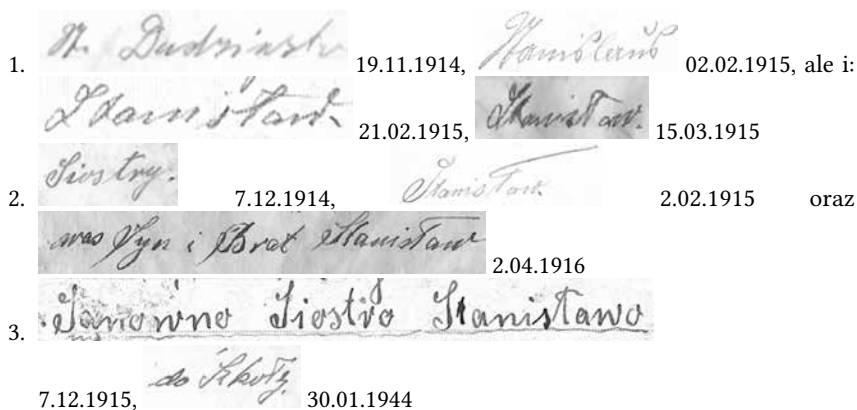 1. St. Dudziński 19.11.1914, Stanislaus 02.02.1915, ale i:
Stanisław. 21.02.1915, Stanisław. 15.03.1915
2. Siostry. 7.12.1914, Stanisław. 2.02.1915 oraz
was Syn i Brat Stanisław 2.04.1916
3. Siostro Stanisławo
7.12.1915, do Szkoły 30.01.1944